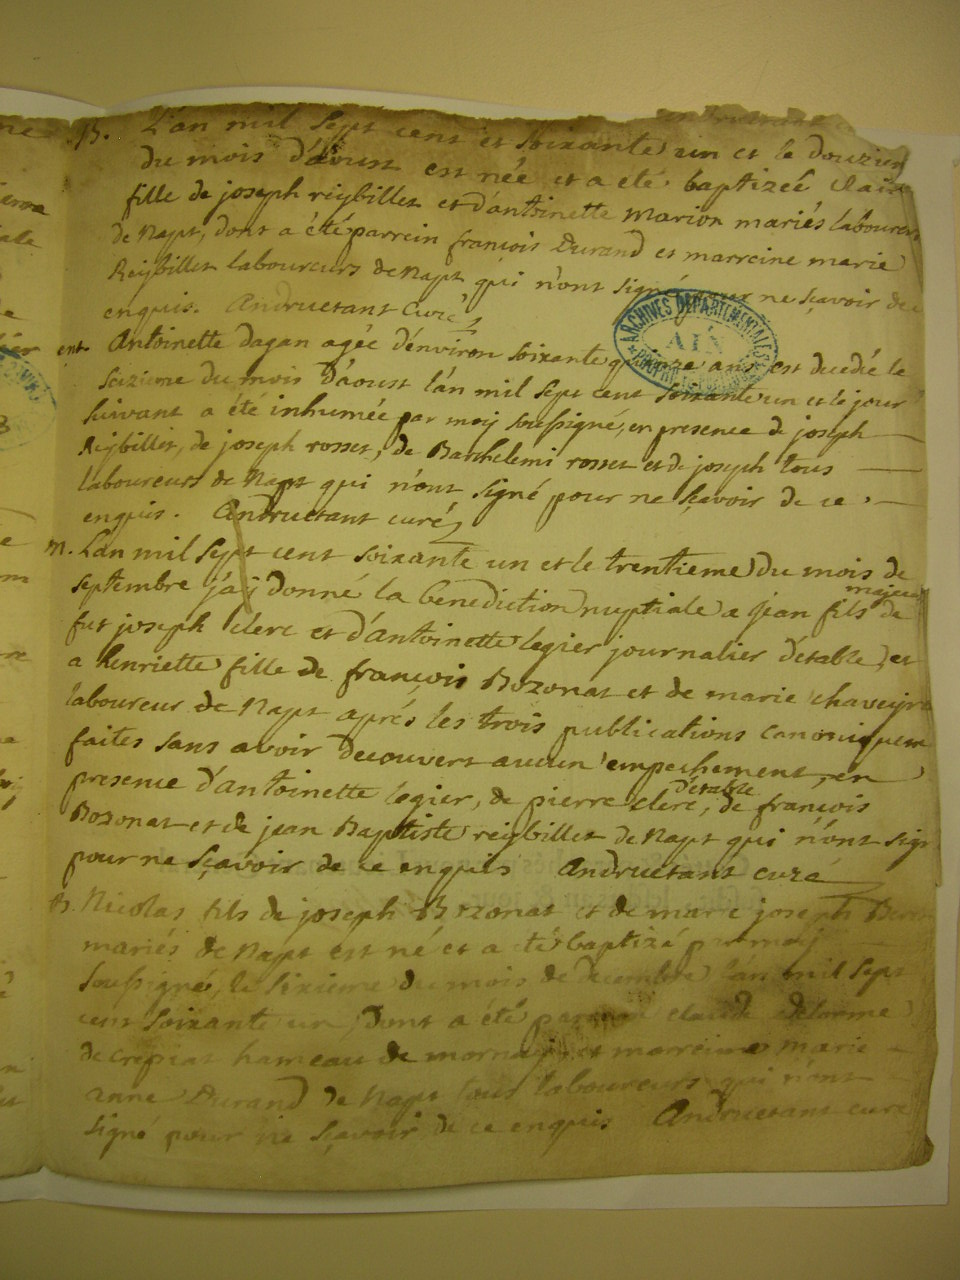 B. L'an mil sept cent et soixante un et le douzieme
du mois d'aoust est née et a été baptizeé
fille de joseph reybillet et d'antoinette marion mariés laboureurs
de Napt, dont a été parrein françois Durand et marreine marie
Reijbillet laboureurs de Napt qui n'ont signé pour ne sçavoir de ce
enquis. Andruetant Curé
ent. Antoinette dagan agée d'environ soixante quinze ans est decedé le
seizieme du mois d'aoust l'an mil sept cent soixante un et le jour
suivant a été inhumée par moij soussigné, en presence de joseph
Reijbillet, de joseph rosset, de Barthelemi rosset et de joseph tous
laboureurs de Napt qui n'ont signé pour ne sçavoir de ce
enquis. Andruetant curé
m. L'an mil sept cent soixante un et le trentieme du mois de
septembre j'aij donné la benediction nuptiale a jean fils majeur de
fut joseph clerc et d'antoinette legier journalier d'etable et
a henriette fille de françois Bozonat et de marie chaveyr
laboureur de Napt aprés les trois publications canoniquem
faites sans avoir decouvert aucun empechement, en
presence d'antoinette legier, de pierre clerc, d'etable de françois
Bozonat et de jean Baptiste reijbillet de Napt qui n'ont sign
pour ne sçavoir de ce enquis Andruetant curé
B. Nicolas fils de joseph Bozonat et de marie joseph
mariés de Napt est né et a été baptizé par moij
soussigné, le sixieme du mois de decembre l'an mil sept
cent soixante un, dont a été parrein claude delorme
de crepiat hameau de mornay et marreine marie
anne Durand de Napt tous laboureurs qui n'ont
signé pour ne sçavoir de ce enquis Andruetant curé
ARCHIVES DEPARTEMENTALES
AIN